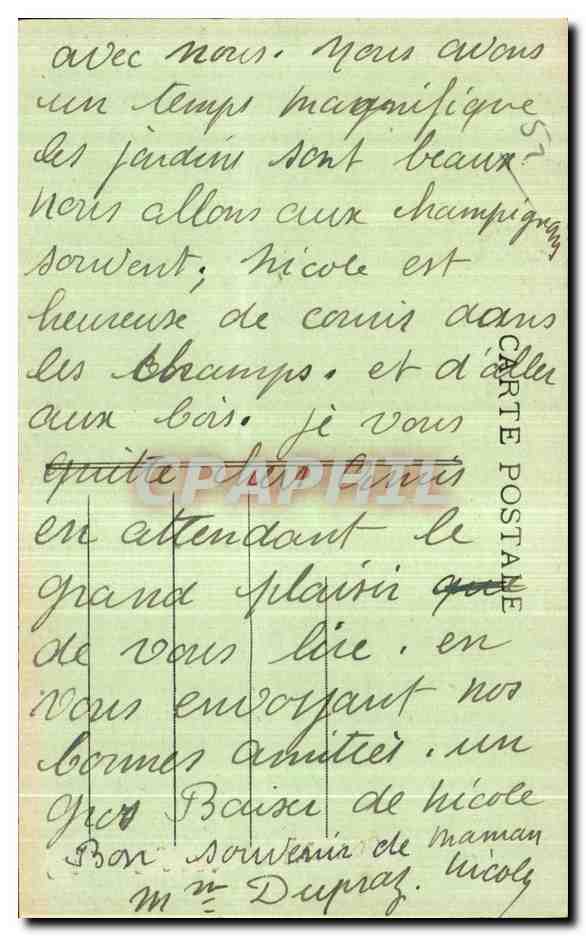 avec nous. Nous avons
un temps magnifique
les jardins sont beaux.
nous allons aux champignons
souvent, Nicole est
heureuse de courir dans
les champs. et d'aller
aux bois. je vous
quitte chers Amis
en attendant le
grand plaisir que
de vous lire. en
vous envoyant nos
bonnes amitiès. un
gros Baiser de Nicole
Bon souvenir de maman
Nicole
Mme Dupraz.
CARTE POSTALE
52
CPAPHIL